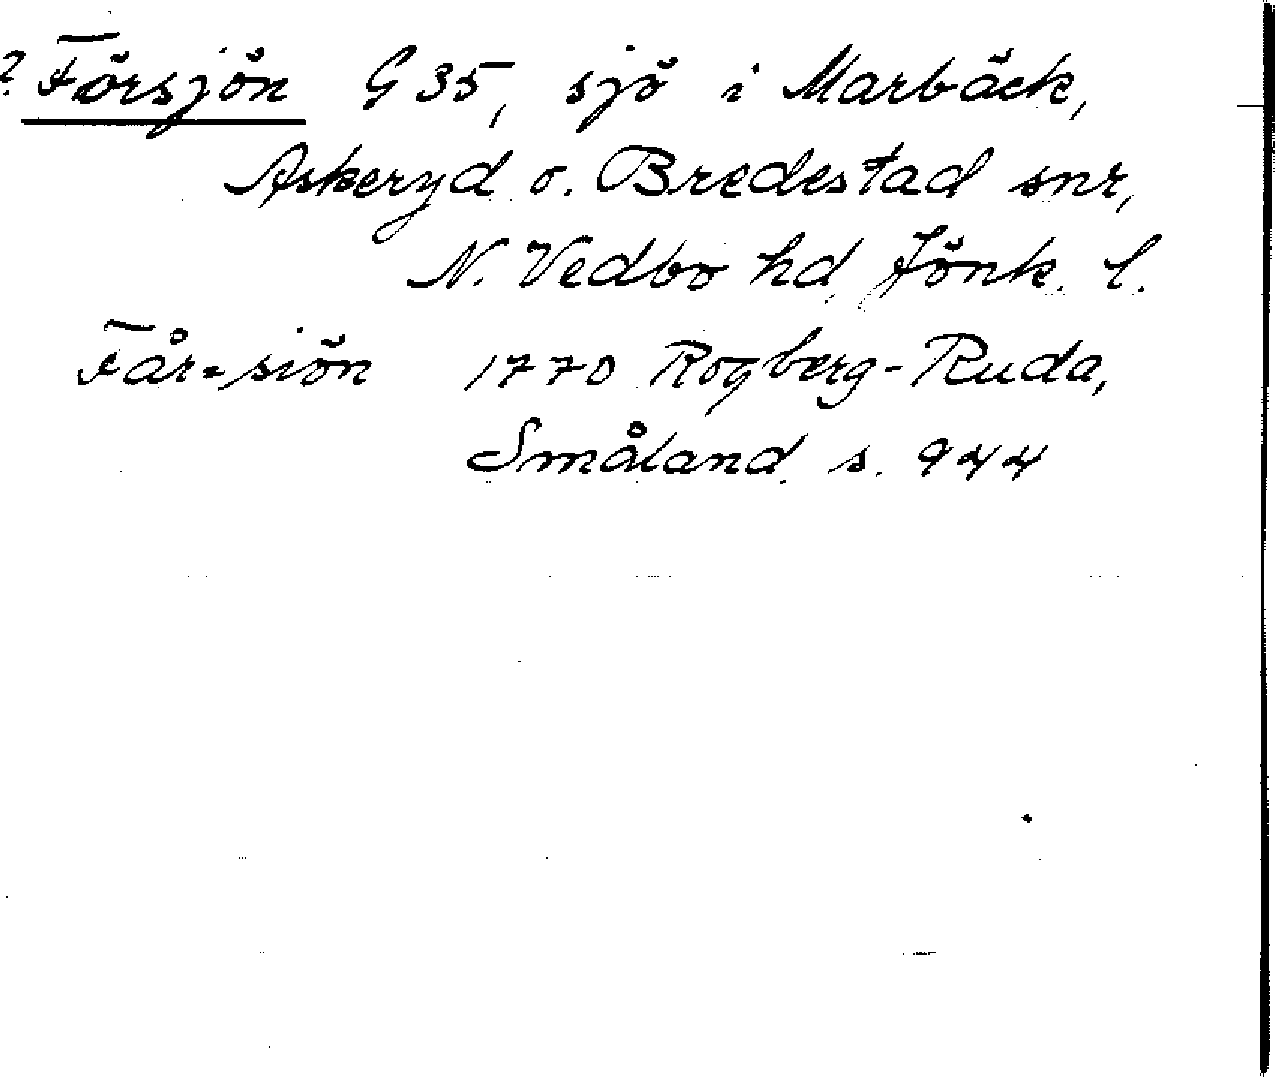 ? Försjön G 35, sjö i Marbäck,
Askeryd o. Bredestad snr,
N. Vedbo hd, Jönk. l.
Får-siön 1770 Rogberg-Ruda,
Småland s. 944